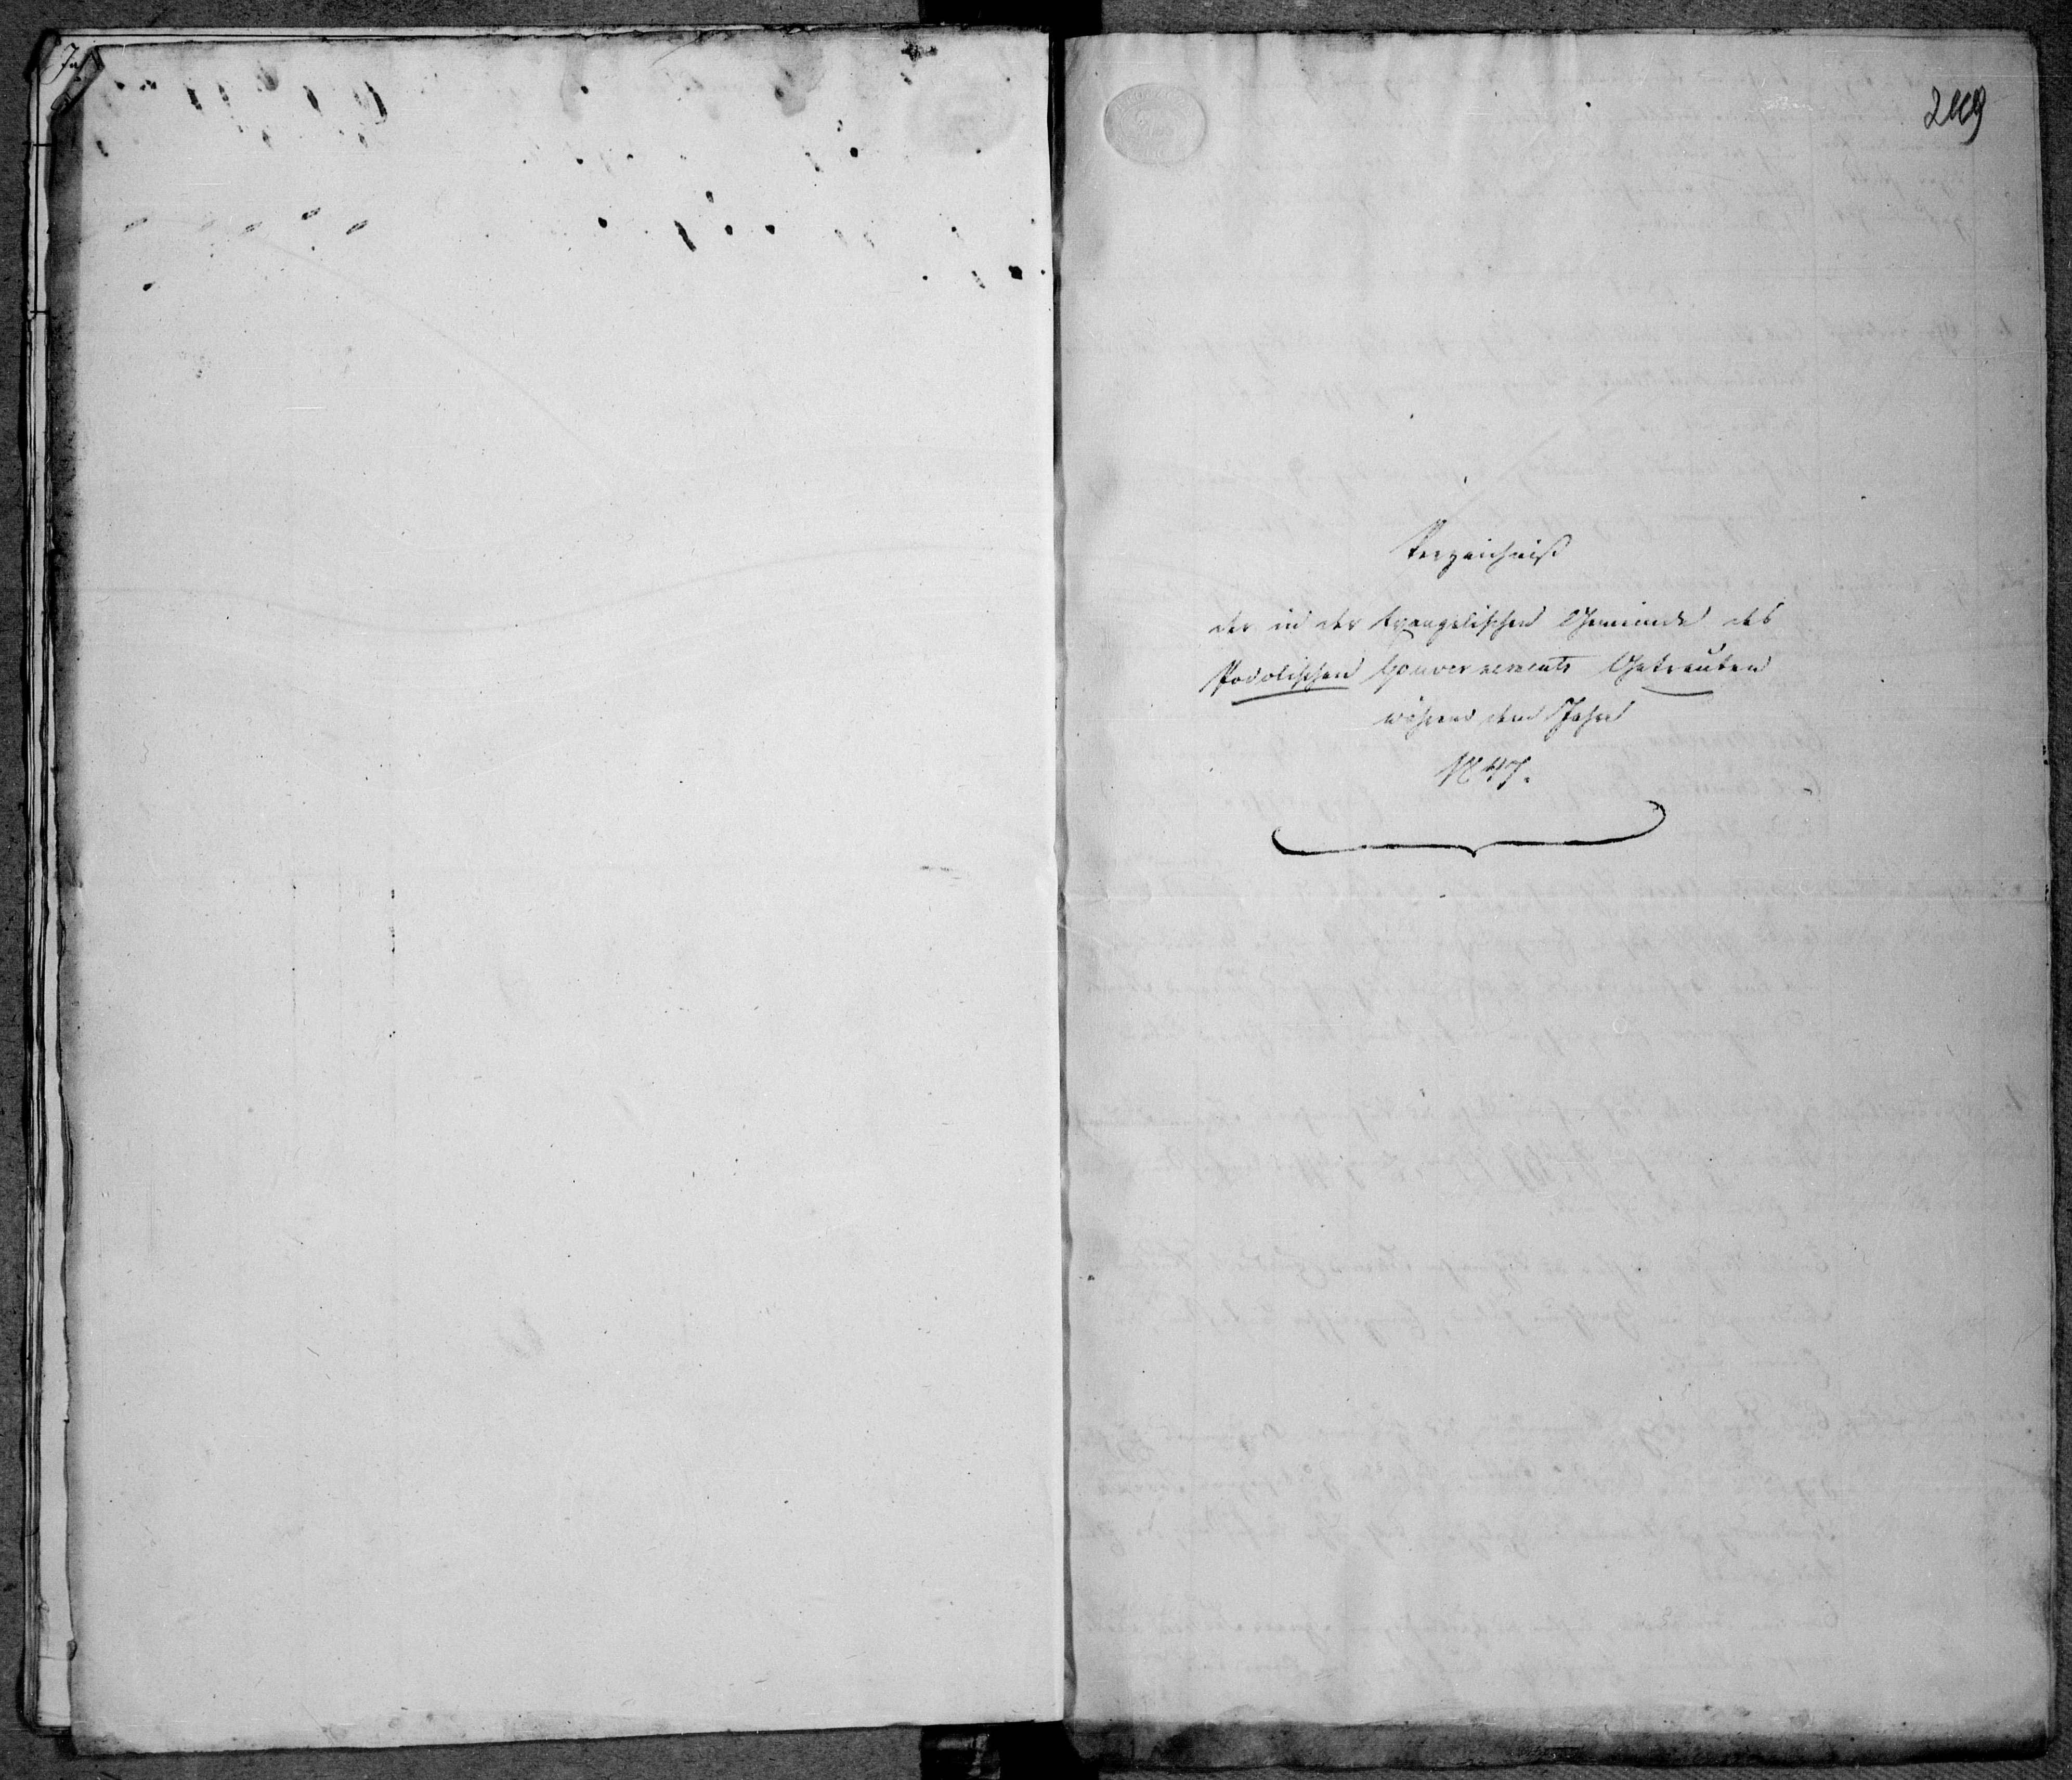 249
Verzeichniß
der in der Evangelischen Gemeinde des
Podolischen Gouvernements Getrauten
während dem Jahre
1847.